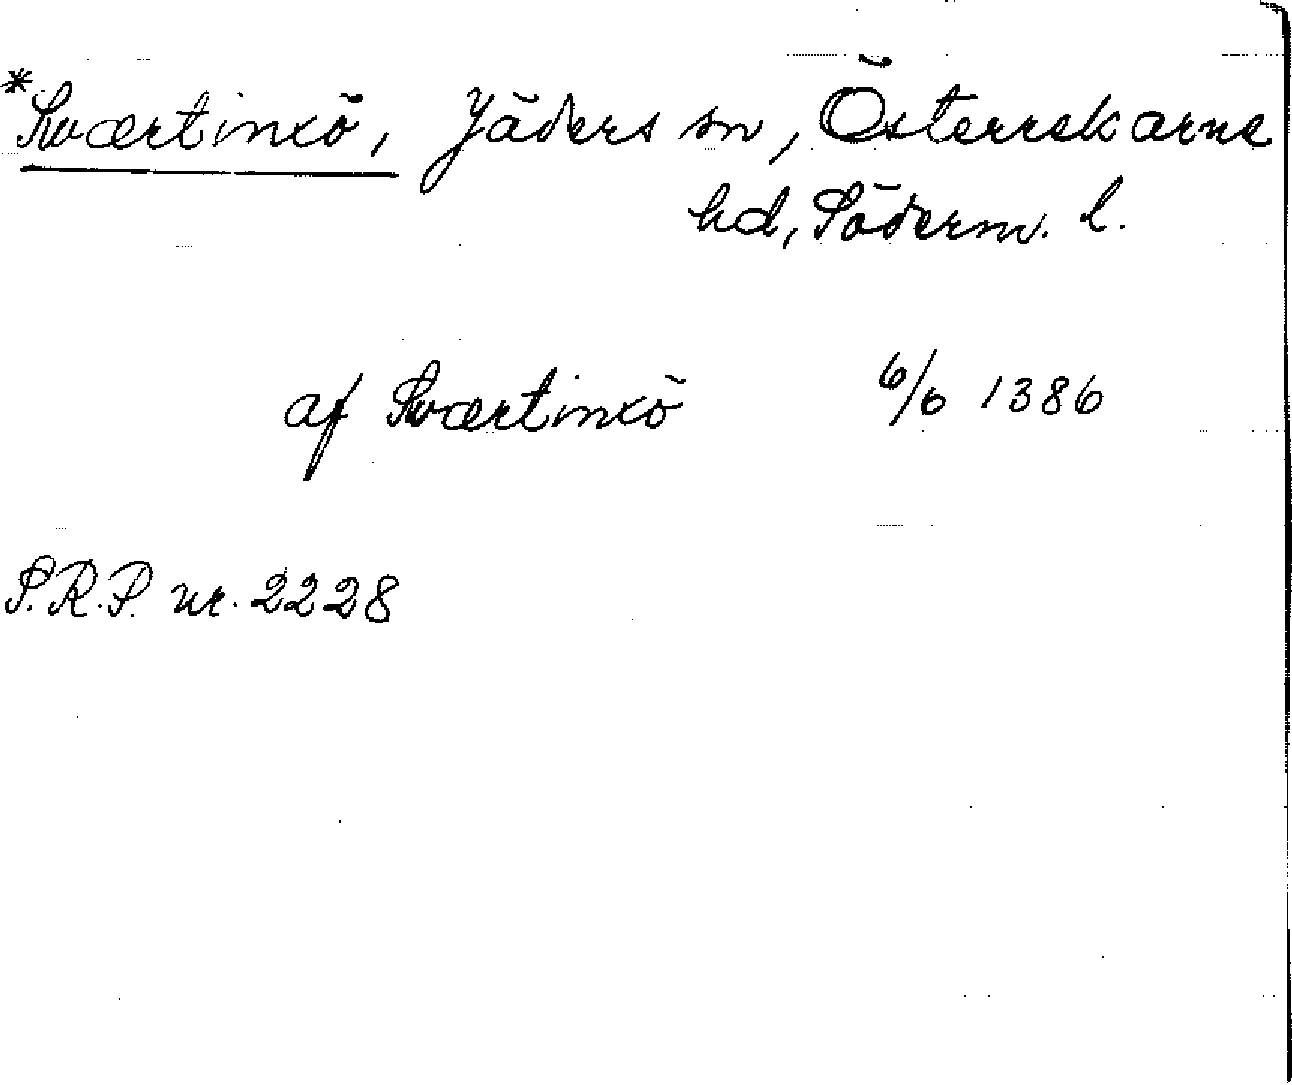 *Swærtinxö, Jäders sn, Österrekarne
hd, Söderm. l.
af Swærtinxö 6/6 1386
S.R.P. nr. 2228